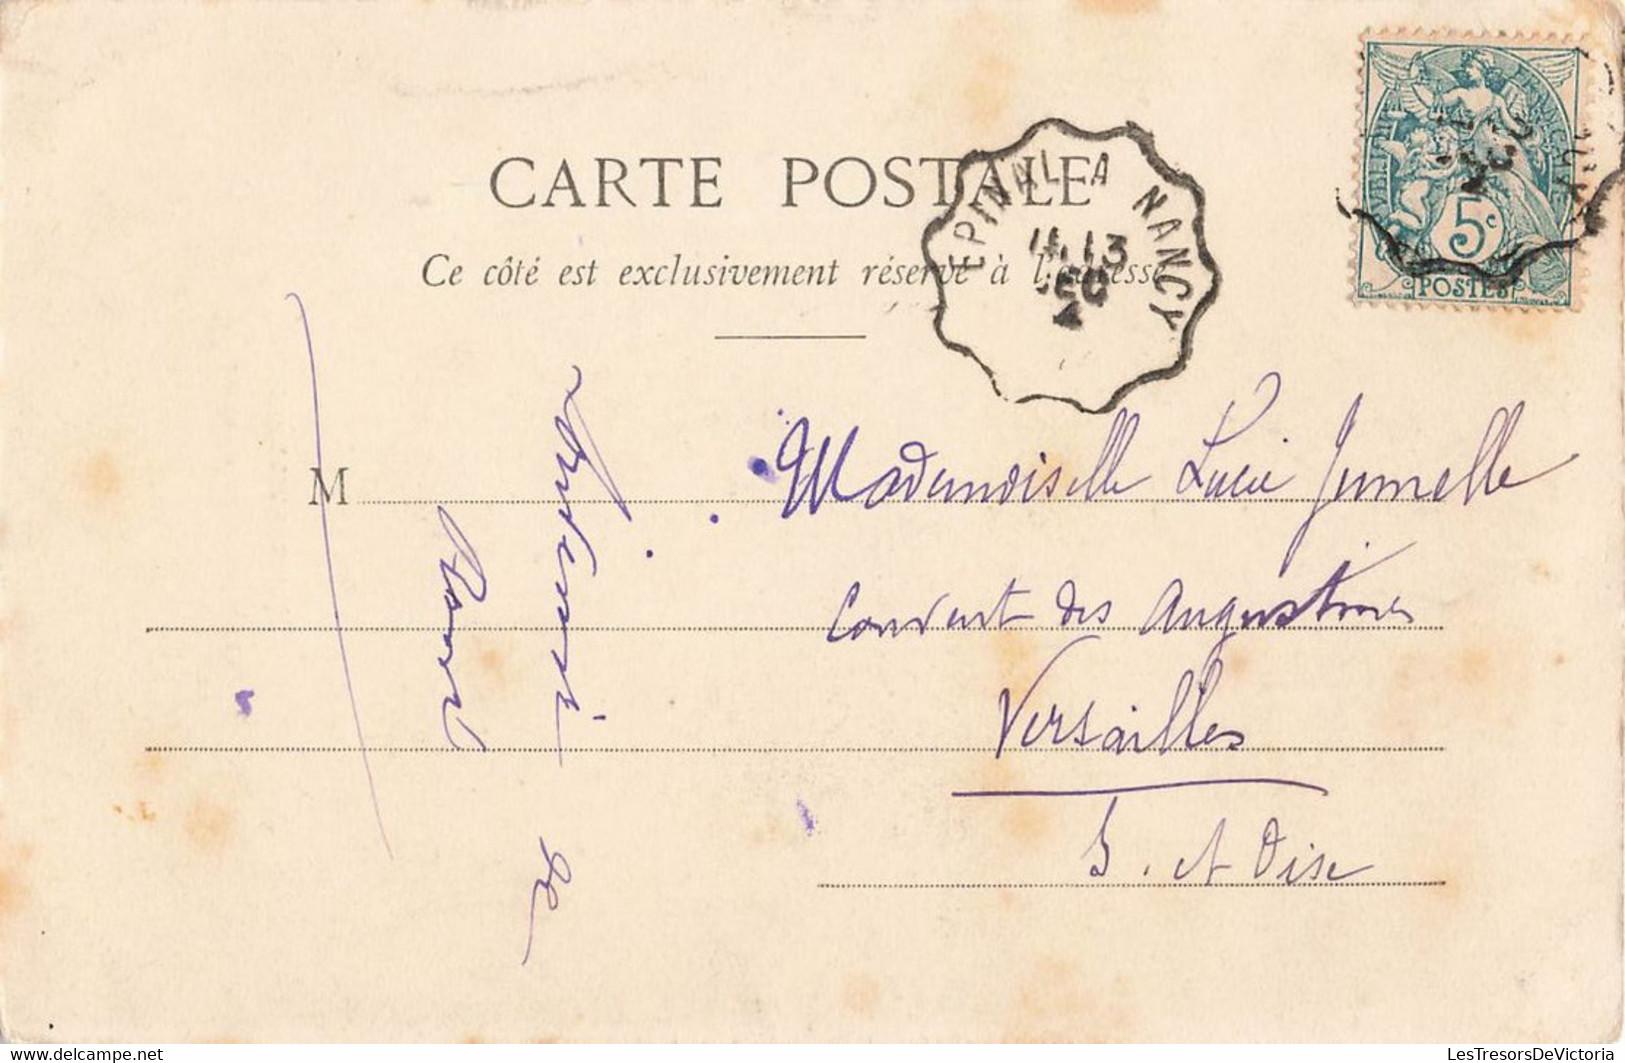 CARTE POSTALE
Ce côté est exclusivement réservé à l'adresse
EPINAL A NANCY
13
DEC
5c
POSTES
M
Mademoiselle Lucie Jumelle
Couvent des Augustines
Versailles
S. et Oise
de
LesTresorsDeVictoria
delcampe.net